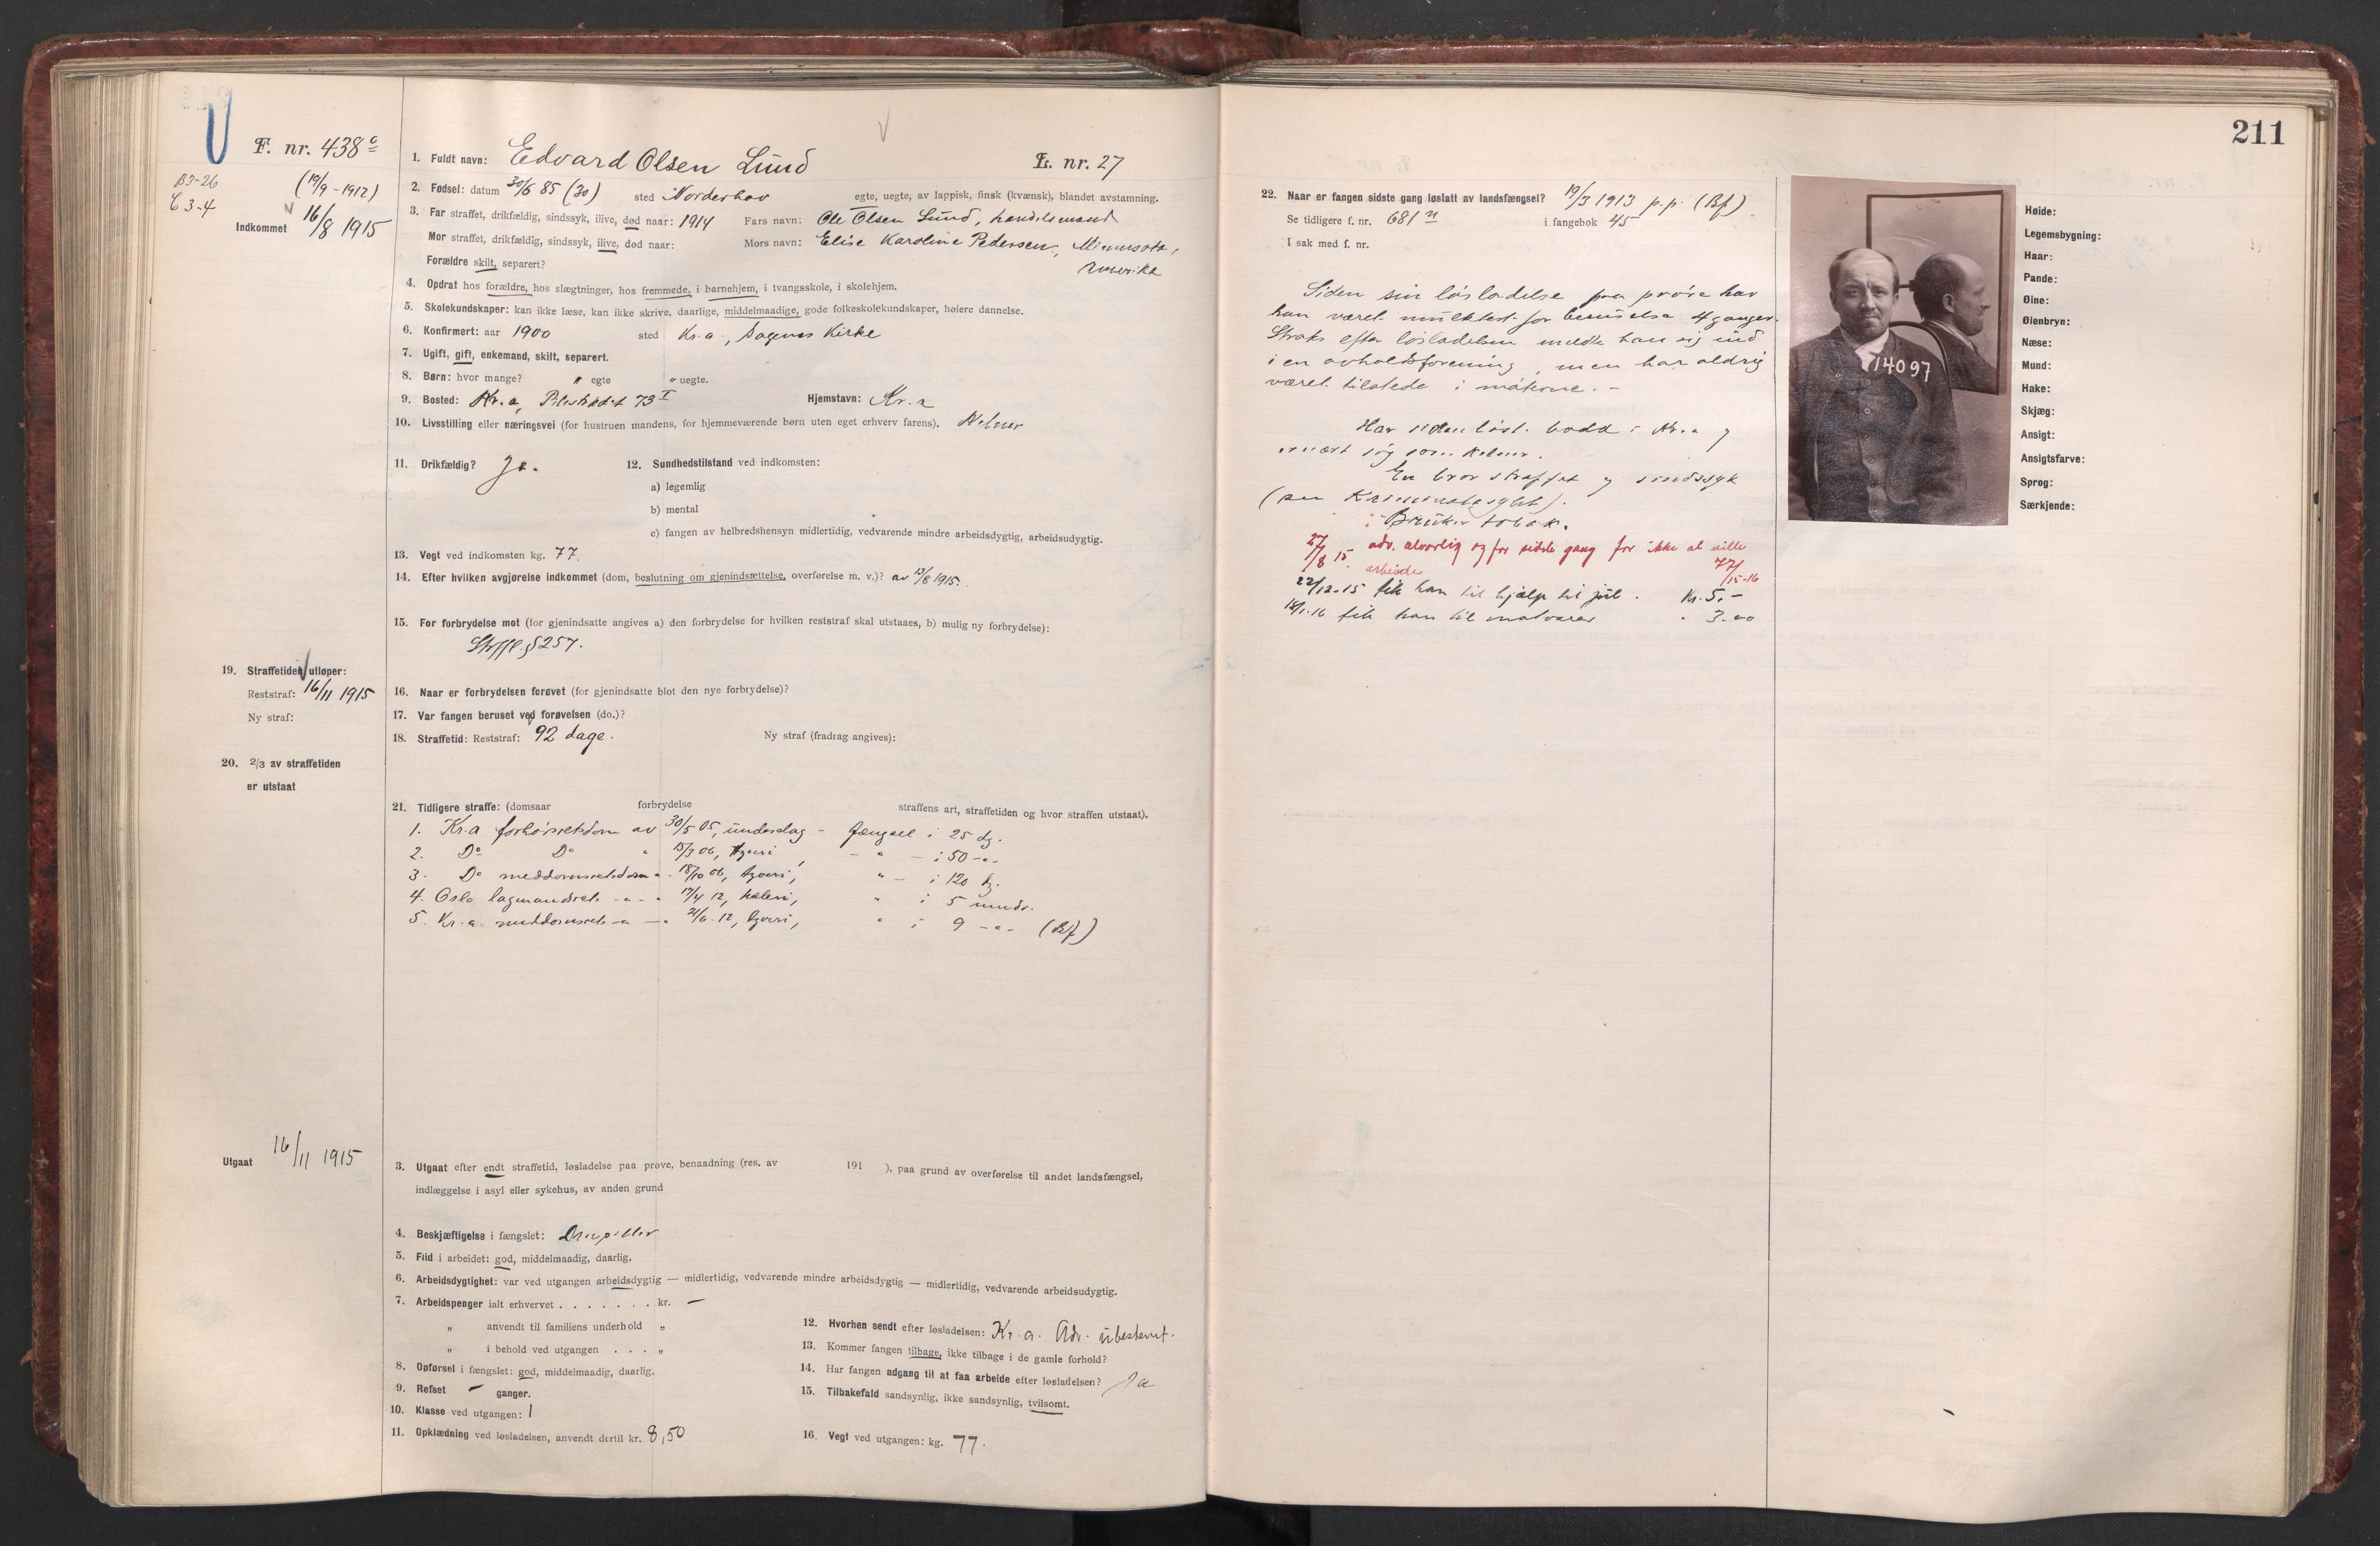 211
F. nr. 438c
B3-26
C 3-4
(19/9-1912)
Indkommet 16/8 1915
1. Fuldt navn: Edvard Olsen Lund L. nr. 27
2. Fødsel: datum 30/6 85 (30) sted Norderhov egte, uegte, av lappisk, finsk (kvænsk), blandet avstamning.
3. Far straffet, drikfældig, sindssyk, ilive, død naar: 1914 Fars navn: Ole Olsen Lund, handelsmand
Mor straffet, drikfældig, sindssyk, ilive, død naar: Mors navn: Elise Karoline Pedersen, Minnesota,
Amerika
Forældre skilt, separert?
4. Opdrat hos forældre, hos slægtninger, hos fremmede, i barnehjem, i tvangsskole, i skolehjem.
5. Skolekundskaper: kan ikke læse, kan ikke skrive, daarlige, middelmaadige, gode folkeskolekundskaper, høiere dannelse.
6. Konfirmert: aar 1900 sted Kr.a, Sagenes Kirke
7. Ugift, gift, enkemand, skilt, separert.
8. Børn: hvor mange? " egte " uegte.
9. Bosted: Kr.a, Pilestrædet 73 I Hjemstavn: Kr.a
10. Livsstilling eller næringsvei (for hustruen mandens, for hjemmeværende børn uten eget erhverv farens). Kelner
11. Drikfældig? Ja. 12. Sundhedstilstand ved indkomsten:
a) legemlig
b) mental
c) fangen av helbredshensyn midlertidig, vedvarende mindre arbeidsdygtig, arbeidsudygtig.
13. Vegt ved indkomsten kg. 77.
14. Efter hvilken avgjørelse indkommet (dom, beslutning om gjenindsættelse, overførelse m. v.)? av 13/8 1915.
15. For forbrydelse mot (for gjenindsatte angives a) den forbrydelse for hvilken reststraf skal utstaaes, b) mulig ny forbrydelse):
Strffl. § 257.
19. Straffetiden utløper:
Reststraf: 16/11 1915
Ny straf:
16. Naar er forbrydelsen forøvet (for gjenindsatte blot den nye forbrydelse)?
17. Var fangen beruset ved forøvelsen (do.)?
18. Straffetid: Reststraf: 92 dage. Ny straf (fradrag angives):
20. 2/3 av straffetiden
er utstaat
21. Tidligere straffe: (domsaar forbrydelse straffens art, straffetiden og hvor straffen utstaat).
1. Kr.a forhørsretsdom av 30/5 05, underslag - fængsel i 25 dg.
2. Do Do " 15/3 06, tyveri, - " - i 50 -"-
3. Do meddomsretsdom " 18/10 06, tyveri, " - i 120 dg.
4. Oslo lagmandsret -"-" 17/4 12, heleri, " i 5 mndr.
5. Kr.a. meddomsret -"-" 21/6 12, tyveri, " i 9 -"- (Bf)
Utgaat 16/11 1915
3. Utgaat efter endt straffetid, løsladelse paa prøve, benaadning (res. av 191 ), paa grund av overførelse til andet landsfængsel,
indlæggelse i asyl eller sykehus, av anden grund
4. Beskjæftigelse i fængslet: Drevpiller
5. Flid i arbeidet: god, middelmaadig, daarlig.
6. Arbeidsdygtighet: var ved utgangen arbeidsdygtig — midlertidig, vedvarende mindre arbeidsdygtig — midlertidig, vedvarende arbeidsudygtig.
7. Arbeidspenger ialt erhvervet . . . . . . . kr. -
" anvendt til familiens underhold "
" i behold ved utgangen . . . "
8. Opførsel i fængslet: god, middelmaadig, daarlig.
9. Refset - ganger.
10. Klasse ved utgangen: 1
11. Opklædning ved løsladelsen, anvendt dertil kr. 8,50
12. Hvorhen sendt efter løsladelsen: Kr.a. Adr. ubestemt.
13. Kommer fangen tilbage, ikke tilbage i de gamle forhold?
14. Har fangen adgang til at faa arbeide efter løsladelsen? Ja
15. Tilbakefald sandsynlig, ikke sandsynlig, tvilsomt.
16. Vegt ved utgangen: kg. 77.
22. Naar er fangen sidste gang løslatt av landsfængsel? 19/3 1913 p.p. (Bf)
Se tidligere f. nr. 681 n i fangebok 45
I sak med f. nr.
Siden sin løsladelse paa prøve har
han været mulktert for beruselse 4 ganger.
Straks efter løsladelsen meldte han sig ind
i en avholdsforening, men har aldrig
været tilstede i møterne. -
Har siden løsl. bodd i Kr.a og
ernært sig som kelner.
En bror straffet og sindssyk
(paa Kriminalasylet).
Bruker tobak.
27/8 15. adv. alvorlig og for sidste gang for ikke at ville
arbeide 77/15-16
22/12-15 fik han til hjælp til jul. Kr. 5.-
18/1-16 fik han til matvarer " 3.00
14097
Høide:
Legemsbygning:
Haar:
Pande:
Øine:
Øienbryn:
Næse:
Mund:
Hake:
Skjæg:
Ansigt:
Ansigtsfarve:
Sprog:
Særkjende: